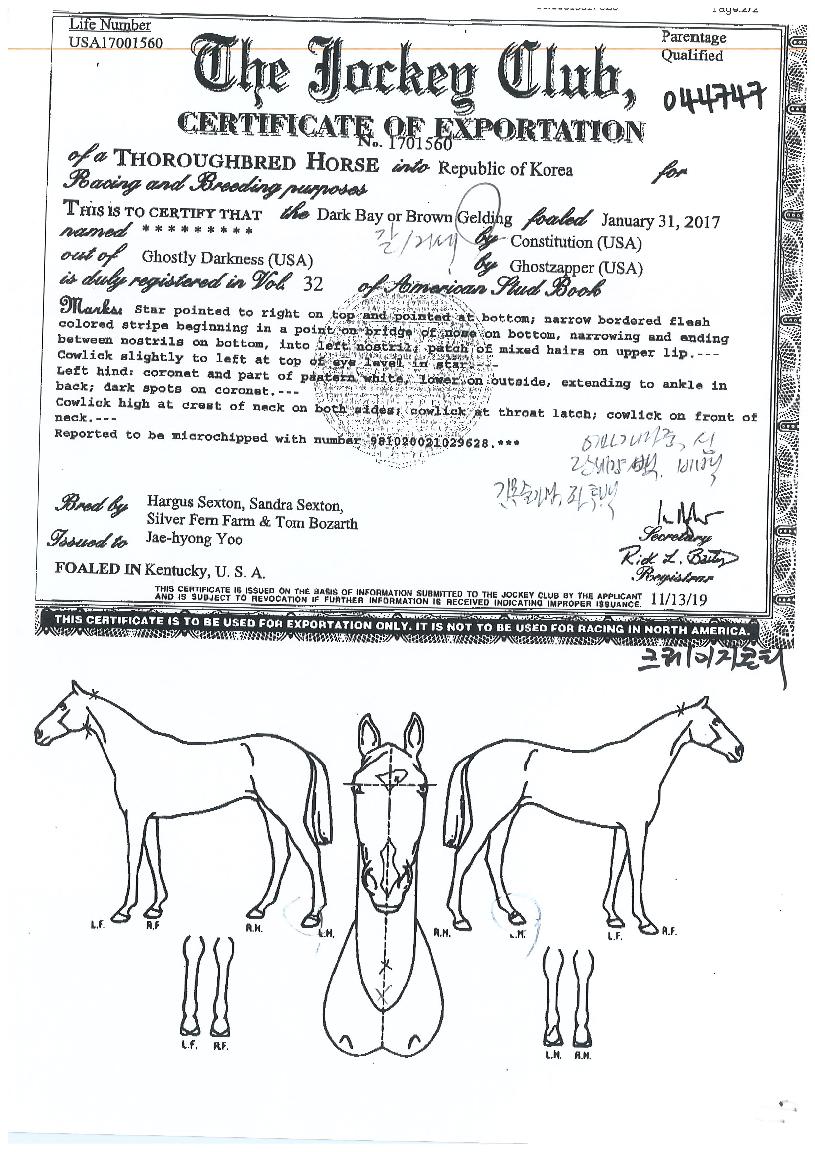 Page:2/2
Life Number
USA17001560
Parentage
Qualified
The Jockey Club,
044747
CERTIFICATE OF EXPORTATION
No. 1701560
of a THOROUGHBRED HORSE into Republic of Korea for
Racing and Breeding purposes
THIS IS TO CERTIFY THAT the Dark Bay or Brown Gelding foaled January 31, 2017
named * * * * * * * * * by Constitution (USA)
갈/거세
out of Ghostly Darkness (USA) by Ghostzapper (USA)
is duly registered in Vol. 32 of American Stud Book
Marks: Star pointed to right on top and pointed at bottom; narrow bordered flesh
colored stripe beginning in a point on bridge of nose on bottom, narrowing and ending
between nostrils on bottom, into left nostril; patch of mixed hairs on upper lip.---
Cowlick slightly to left at top of eye level in star.---
Left hind: coronet and part of pastern white, lower on outside, extending to ankle in
back; dark spots on coronet.---
Cowlick high at crest of neck on both sides; cowlick at throat latch; cowlick on front of
neck.---
Reported to be microchipped with number 981020021029628.***
Bred by Hargus Sexton, Sandra Sexton,
Silver Fern Farm & Tom Bozarth
Issued to Jae-hyong Yoo
Secretary
Rick L. Bailey
Registrar
FOALED IN Kentucky, U. S. A.
THIS CERTIFICATE IS ISSUED ON THE BASIS OF INFORMATION SUBMITTED TO THE JOCKEY CLUB BY THE APPLICANT
AND IS SUBJECT TO REVOCATION IF FURTHER INFORMATION IS RECEIVED INDICATING IMPROPER ISSUANCE. 11/13/19
THIS CERTIFICATE IS TO BE USED FOR EXPORTATION ONLY. IT IS NOT TO BE USED FOR RACING IN NORTH AMERICA.
L.F. R.F. R.H. L.H. R.H. L.H. L.F. R.F.
L.F. R.F. L.H. R.H.